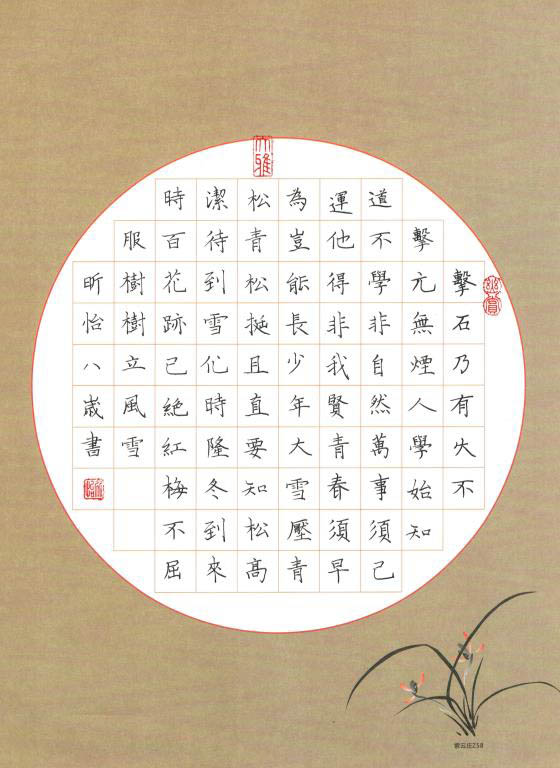 擊石乃有火不
擊元無煙人學始知
道不學非自然萬事須己
運他得非我賢青春須早
為豈能長少年大雪壓青
松青松挺且直要知松高
潔待到雪化時隆冬到來
時百花跡已絕紅梅不屈
服樹樹立風雪
昕怡八歲書
大雅
幽賞
紫云庄258